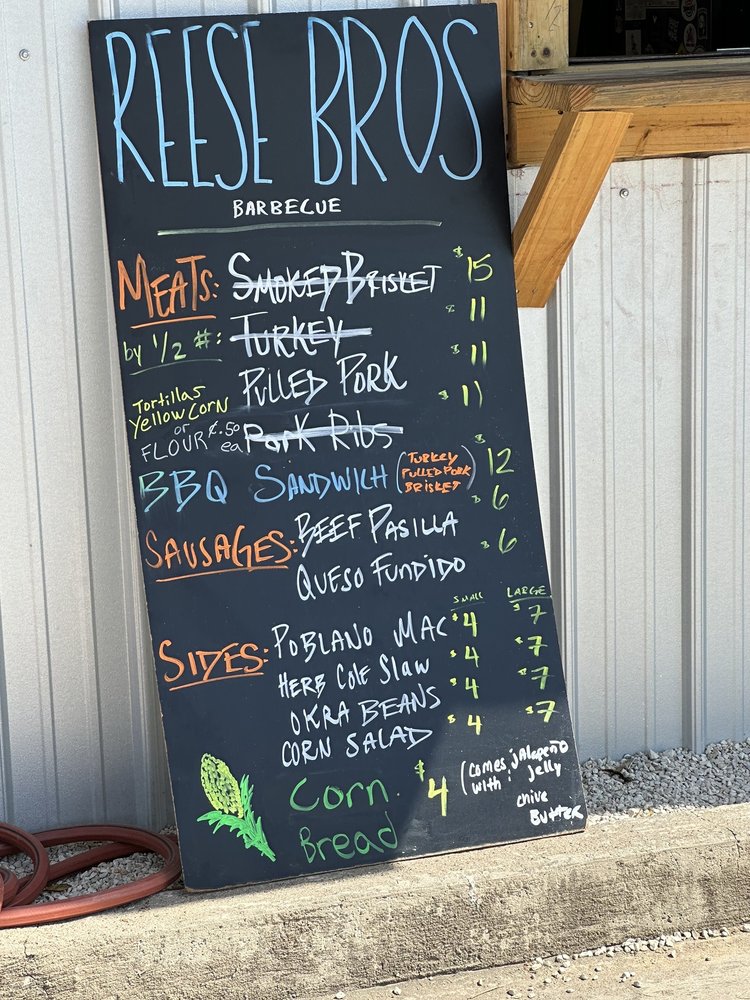 REESE BROS
BARBECUE
MEATS: SMOKED BRISKET $15
by 1/2 #: TURKEY $11
PULLED PORK $11
Tortillas
Yellow CORN
or
FLOUR ¢.50 ea
PORK RIBS $11
BBQ SANDWICH (TURKEY PULLED PORK BRISKET) $12
SAUSAGES: BEEF PASILLA $6
QUESO FUNDIDO $6
SMALL LARGE
SIDES: POBLANO MAC $4 $7
HERB COLE SLAW $4 $7
OKRA BEANS $4 $7
CORN SALAD $4 $7
Corn Bread $4 (comes with: jalapeño jelly
chive
Butter